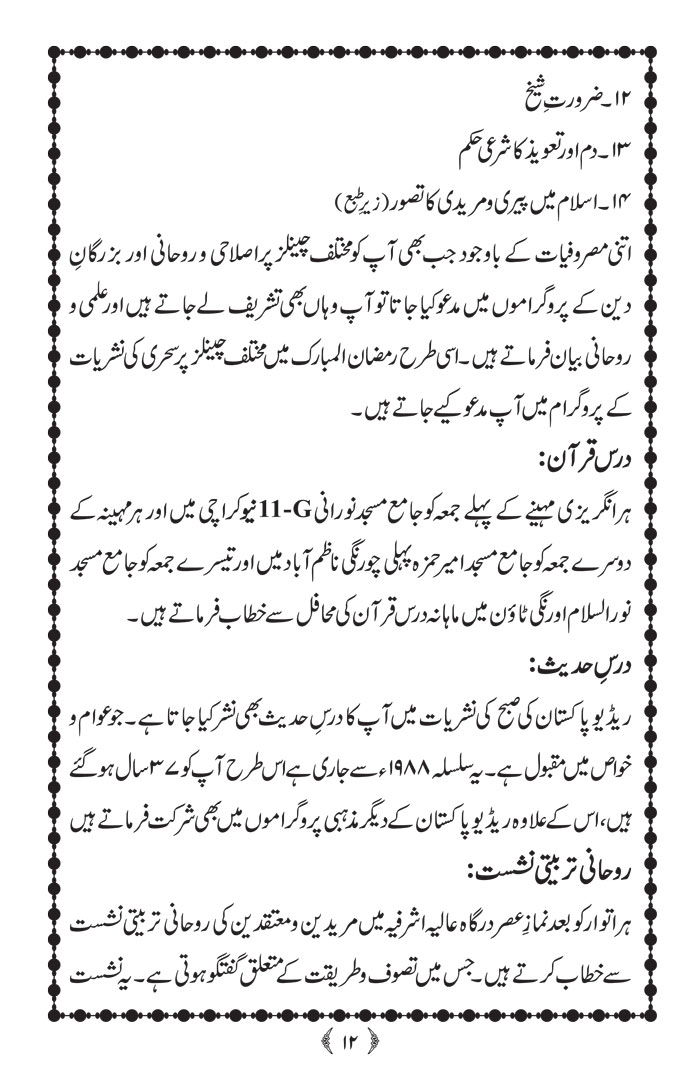 ۱۲۔ضرورتِ شیخ
۱۳۔دم اور تعویذ کا شرعی حکم
۱۴۔اسلام میں پیری ومریدی کا تصور (زیرِ طبع)
اتنی مصروفیات کے باوجود جب بھی آپ کو مختلف چینلز پر اصلاحی و روحانی اور بزرگانِ
دین کے پروگراموں میں مدعو کیا جاتا تو آپ وہاں بھی تشریف لے جاتے ہیں اور علمی و
روحانی بیان فرماتے ہیں۔اسی طرح رمضان المبارک میں مختلف چینلز پر سحری کی نشریات
کے پروگرام میں آپ مدعو کیے جاتے ہیں۔
درس قرآن:
ہر انگریزی مہینے کے پہلے جمعہ کو جامع مسجد نورانی 11-G نیو کراچی میں اور ہر مہینہ کے
دوسرے جمعہ کو جامع مسجد امیر حمزہ پہلی چورنگی ناظم آباد میں اور تیسرے جمعہ کو جامع مسجد
نور السلام اورنگی ٹاؤن میں ماہانہ درس قرآن کی محافل سے خطاب فرماتے ہیں۔
درسِ حدیث:
ریڈیو پاکستان کی صبح کی نشریات میں آپ کا درسِ حدیث بھی نشر کیا جاتا ہے۔ جو عوام و
خواص میں مقبول ہے۔ یہ سلسلہ ۱۹۸۸ء سے جاری ہے اس طرح آپ کو ۳۷ سال ہوگئے
ہیں، اس کے علاوہ ریڈیو پاکستان کے دیگر مذہبی پروگراموں میں بھی شرکت فرماتے ہیں
روحانی تربیتی نشست:
ہر اتوار کو بعد نمازِ عصر درگاہ عالیہ اشرفیہ میں مریدین ومعتقدین کی روحانی تربیتی نشست
سے خطاب کرتے ہیں۔جس میں تصوف وطریقت کے متعلق گفتگو ہوتی ہے۔ یہ نشست
﴿ ۱۲ ﴾